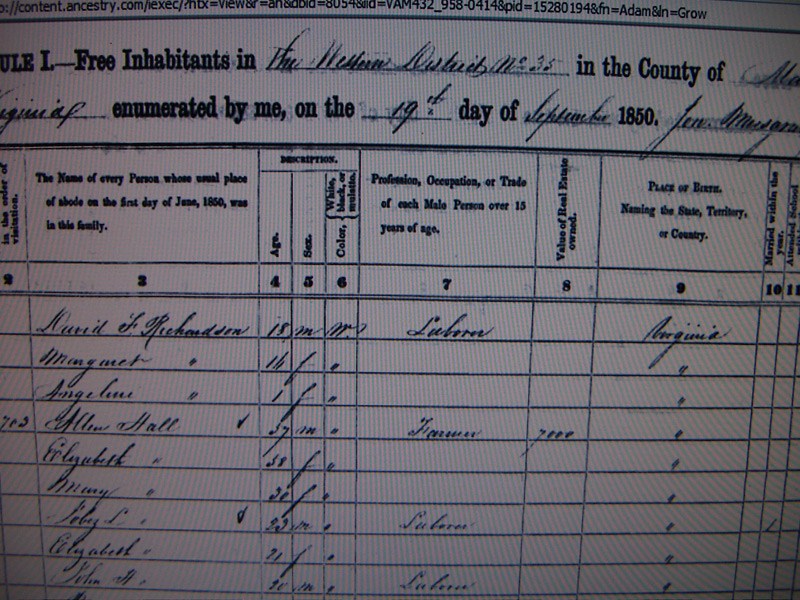 p://content.ancestry.com/iexec/?htx=View&r=an&dbid=8054&iid=VAM432_958-0414&pid=15280194&fn=Adam&ln=Grow
ULE I.—Free Inhabitants in The Western District No 35 in the County of
enumerated by me, on the 19th day of September 1850.
in the order of visitation.
The Name of every Person whose usual place
of abode on the first day of June, 1850, was
in this family.
DESCRIPTION.
Age.
Sex.
Color, White, black, or mulatto.
Profession, Occupation, or Trade
of each Male Person over 15
years of age.
Value of Real Estate owned.
PLACE OF BIRTH.
Naming the State, Territory,
or Country.
Married within the year.
Attended School
2 3 4 5 6 7 8 9 10 11
David F. Richardson 18 m W. Laborer Virginia
Margaret " 14 f " "
Angeline " 1 f " "
703 Allen Hall 57 m " Farmer 7000 "
Elizabeth " 58 f " "
Mary " 30 f " "
" 23 m " Laborer " 1
Elizabeth " 21 f " "
John H. " 20 m " Laborer "